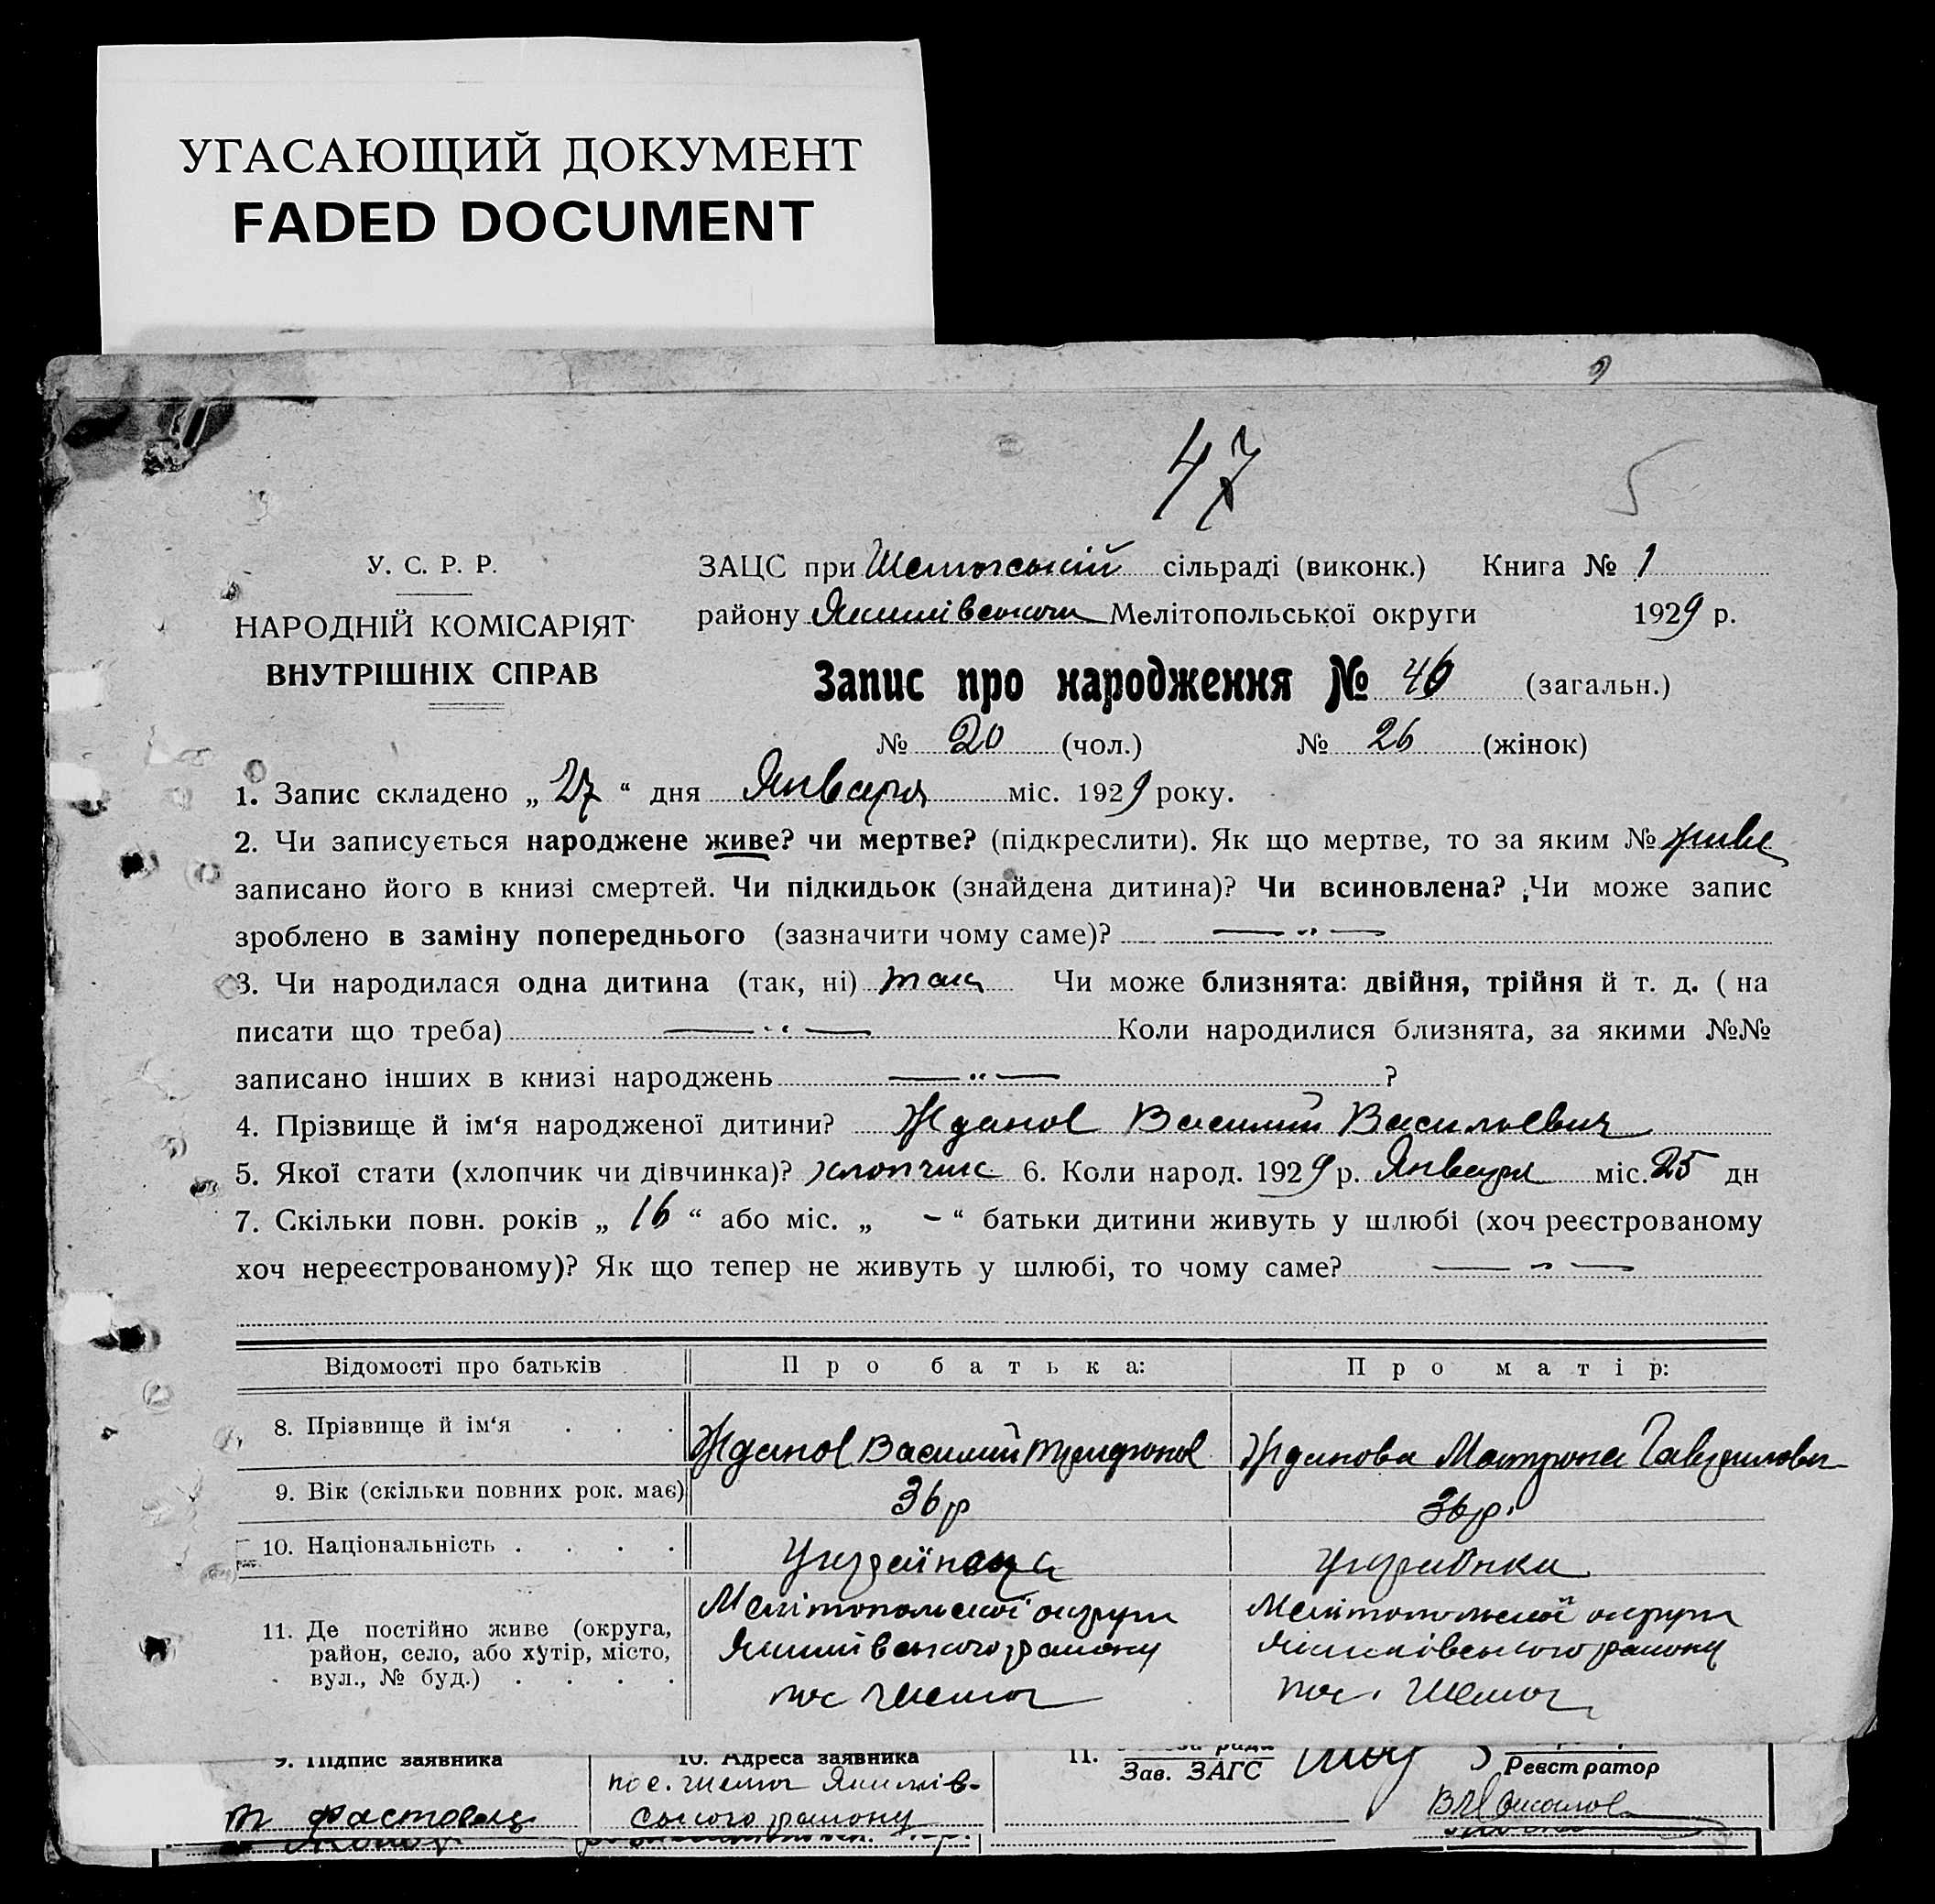 УГАСАЮЩИЙ ДОКУМЕНТ
FADED DOCUMENT
9
47
5
У. С. Р. Р.
НАРОДНІЙ КОМІСАРІЯТ
ВНУТРІШНІХ СПРАВ
ЗАЦС при сільраді (виконк.) Книга № 1
району Якимівського Мелітопольської округи 1929 р.
Запис про народження № 46 (загальн.)
№ 20 (чол.) № 26 (жінок)
1. Запис складено „ 27 “ дня Января міс. 1929 року.
2. Чи записується народжене живе? чи мертве? (підкреслити). Як що мертве, то за яким № живе
записано його в книзі смертей. Чи підкидьок (знайдена дитина)? Чи всиновлена? Чи може запис
зроблено в заміну попереднього (зазначити чому саме)? — " —
3. Чи народилася одна дитина (так, ні) так Чи може близнята: двійня, трійня й т. д. ( на
писати що треба) — " — Коли народилися близнята, за якими №№
записано інших в книзі народжень — " — ?
4. Прізвище й ім‘я народженої дитини? Жданов Василий Васильевич
5. Якої стати (хлопчик чи дівчинка)? хлопчик 6. Коли народ. 1929 р. Января міс. 25 дн
7. Скільки повн. років „ 16 “ або міс. „ - “ батьки дитини живуть у шлюбі (хоч реєстрованому
хоч нереєстрованому)? Як що тепер не живуть у шлюбі, то чому саме? — " —
Відомості про батьків Про батька: Про матір:
8. Прізвище й ім‘я . . . Жданов Василий Трифонов Жданова Матрона Гаврилова
9. Вік (скільки повних рок. має) 36 р 36 р.
10. Національність . . . . Українец Українка
11. Де постійно живе (округа, район, село, або хутір, місто, вул., № буд.) . . . .
Мелітопольської округи
Якимівського району
пос
Мелітопольської округи
Якимівського району
пос.
9. Підпис заявника 10. Адреса заявника 11. Зав. ЗАГС Реєстратор
пос. Якимів-
ського району
Фастовец